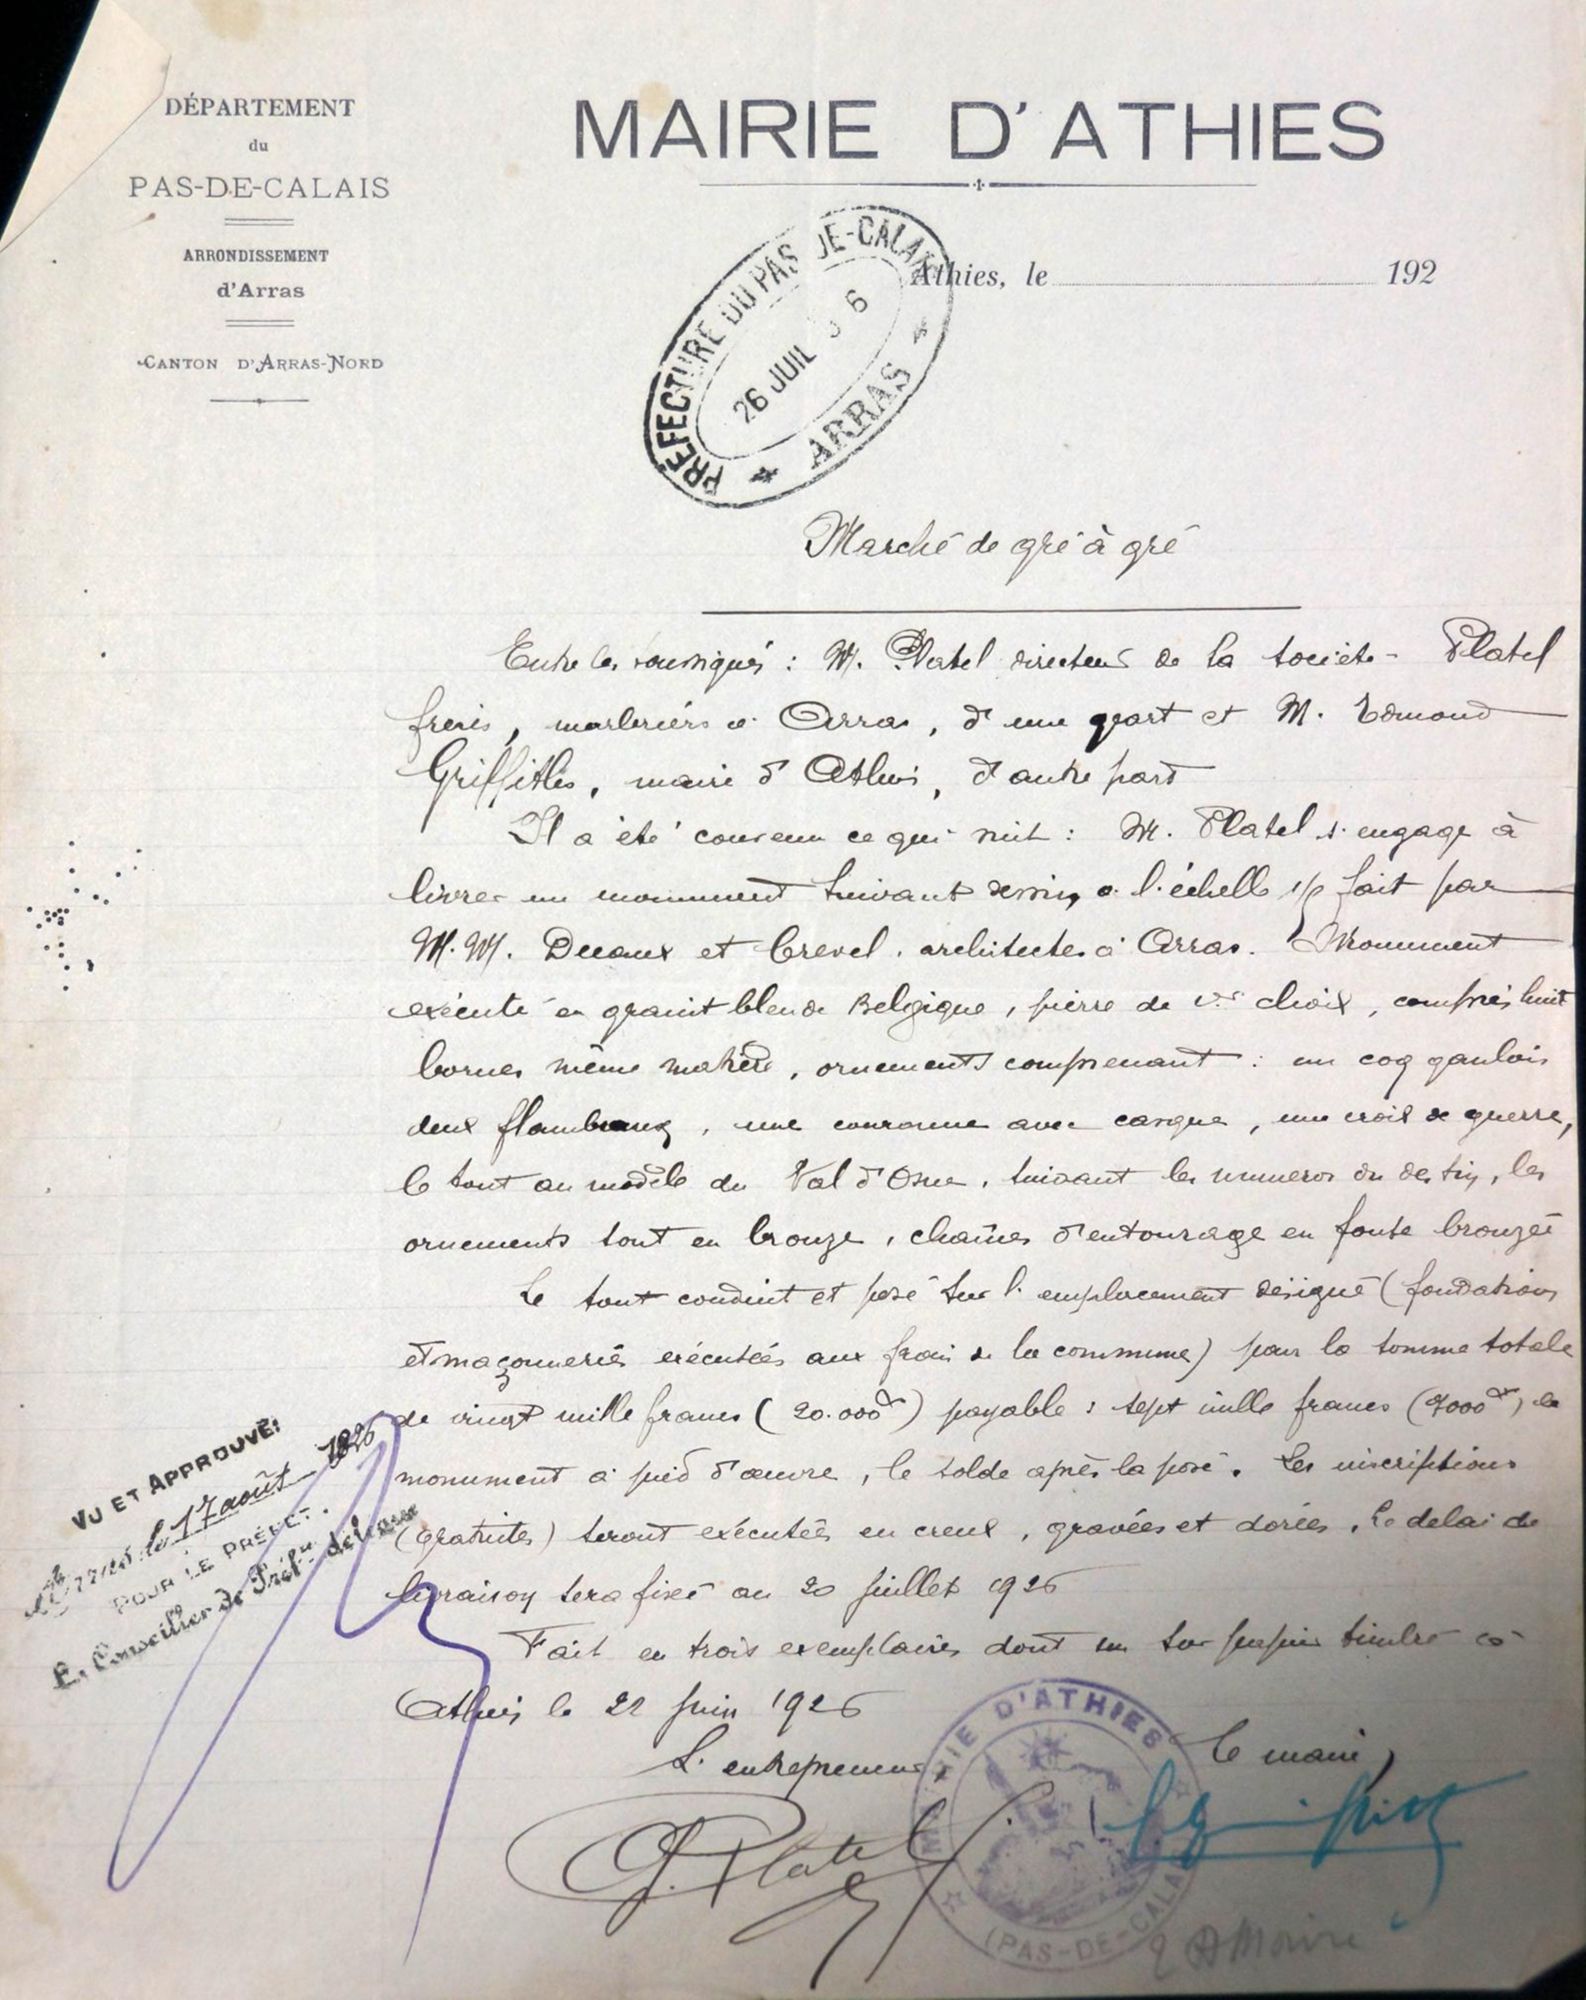 DÉPARTEMENT
du
PAS-DE-CALAIS
ARRONDISSEMENT
d'Arras
CANTON D'ARRAS-NORD
MAIRIE D'ATHIES
Athies, le 192
PREFECTURE DU PAS DE-CALAIS
26 JUIL 6
* ARRAS *
Marché de gré à gré
Entre les soussignés : M. Platel directeur de la société Platel
frères, marbriers à Arras, d'une part et M. Edmond
Griffiths, maire d'Athies, d'autre part
Il a été convenu ce qui suit : M. Platel s'engage à
livrer un monument suivant dessin à l'échelle fait par
M.M. Decaux et Crevel, architectes à Arras. Monument
exécuté en granit bleu de Belgique, pierre de 1er choix, compris huit
bornes même matière, ornements comprenant : un coq gaulois
deux flambeaux, une couronne avec casque, une croix de guerre,
le tout au modèle du Val d'Osne, suivant les numéros du dessin, les
ornements sont en bronze, chaînes d'entourage en fonte bronzée
Le tout conduit et posé sur l'emplacement désigné (fondations
et maçonneries exécutées aux frais de la commune) pour la somme totale
de vingt mille francs (20.000f) payable : sept mille francs (7000f) le
monument à pied d'œuvre, le solde après la pose. Les inscriptions
(gratuites) seront exécutées en creux, gravées et dorées. Le délai de
livraison sera fixé au 20 juillet 1926
Fait en trois exemplaires dont un sur papier timbré à
Athies le 22 juin 1926
L'entrepreneur,
Le maire,
G. Platel
VU ET APPROUVÉ:
Arras le 17 août 1926
POUR LE PRÉFET.
Le Conseiller de Préfre délégué
MAIRIE D'ATHIES
(PAS-DE-CALAIS)